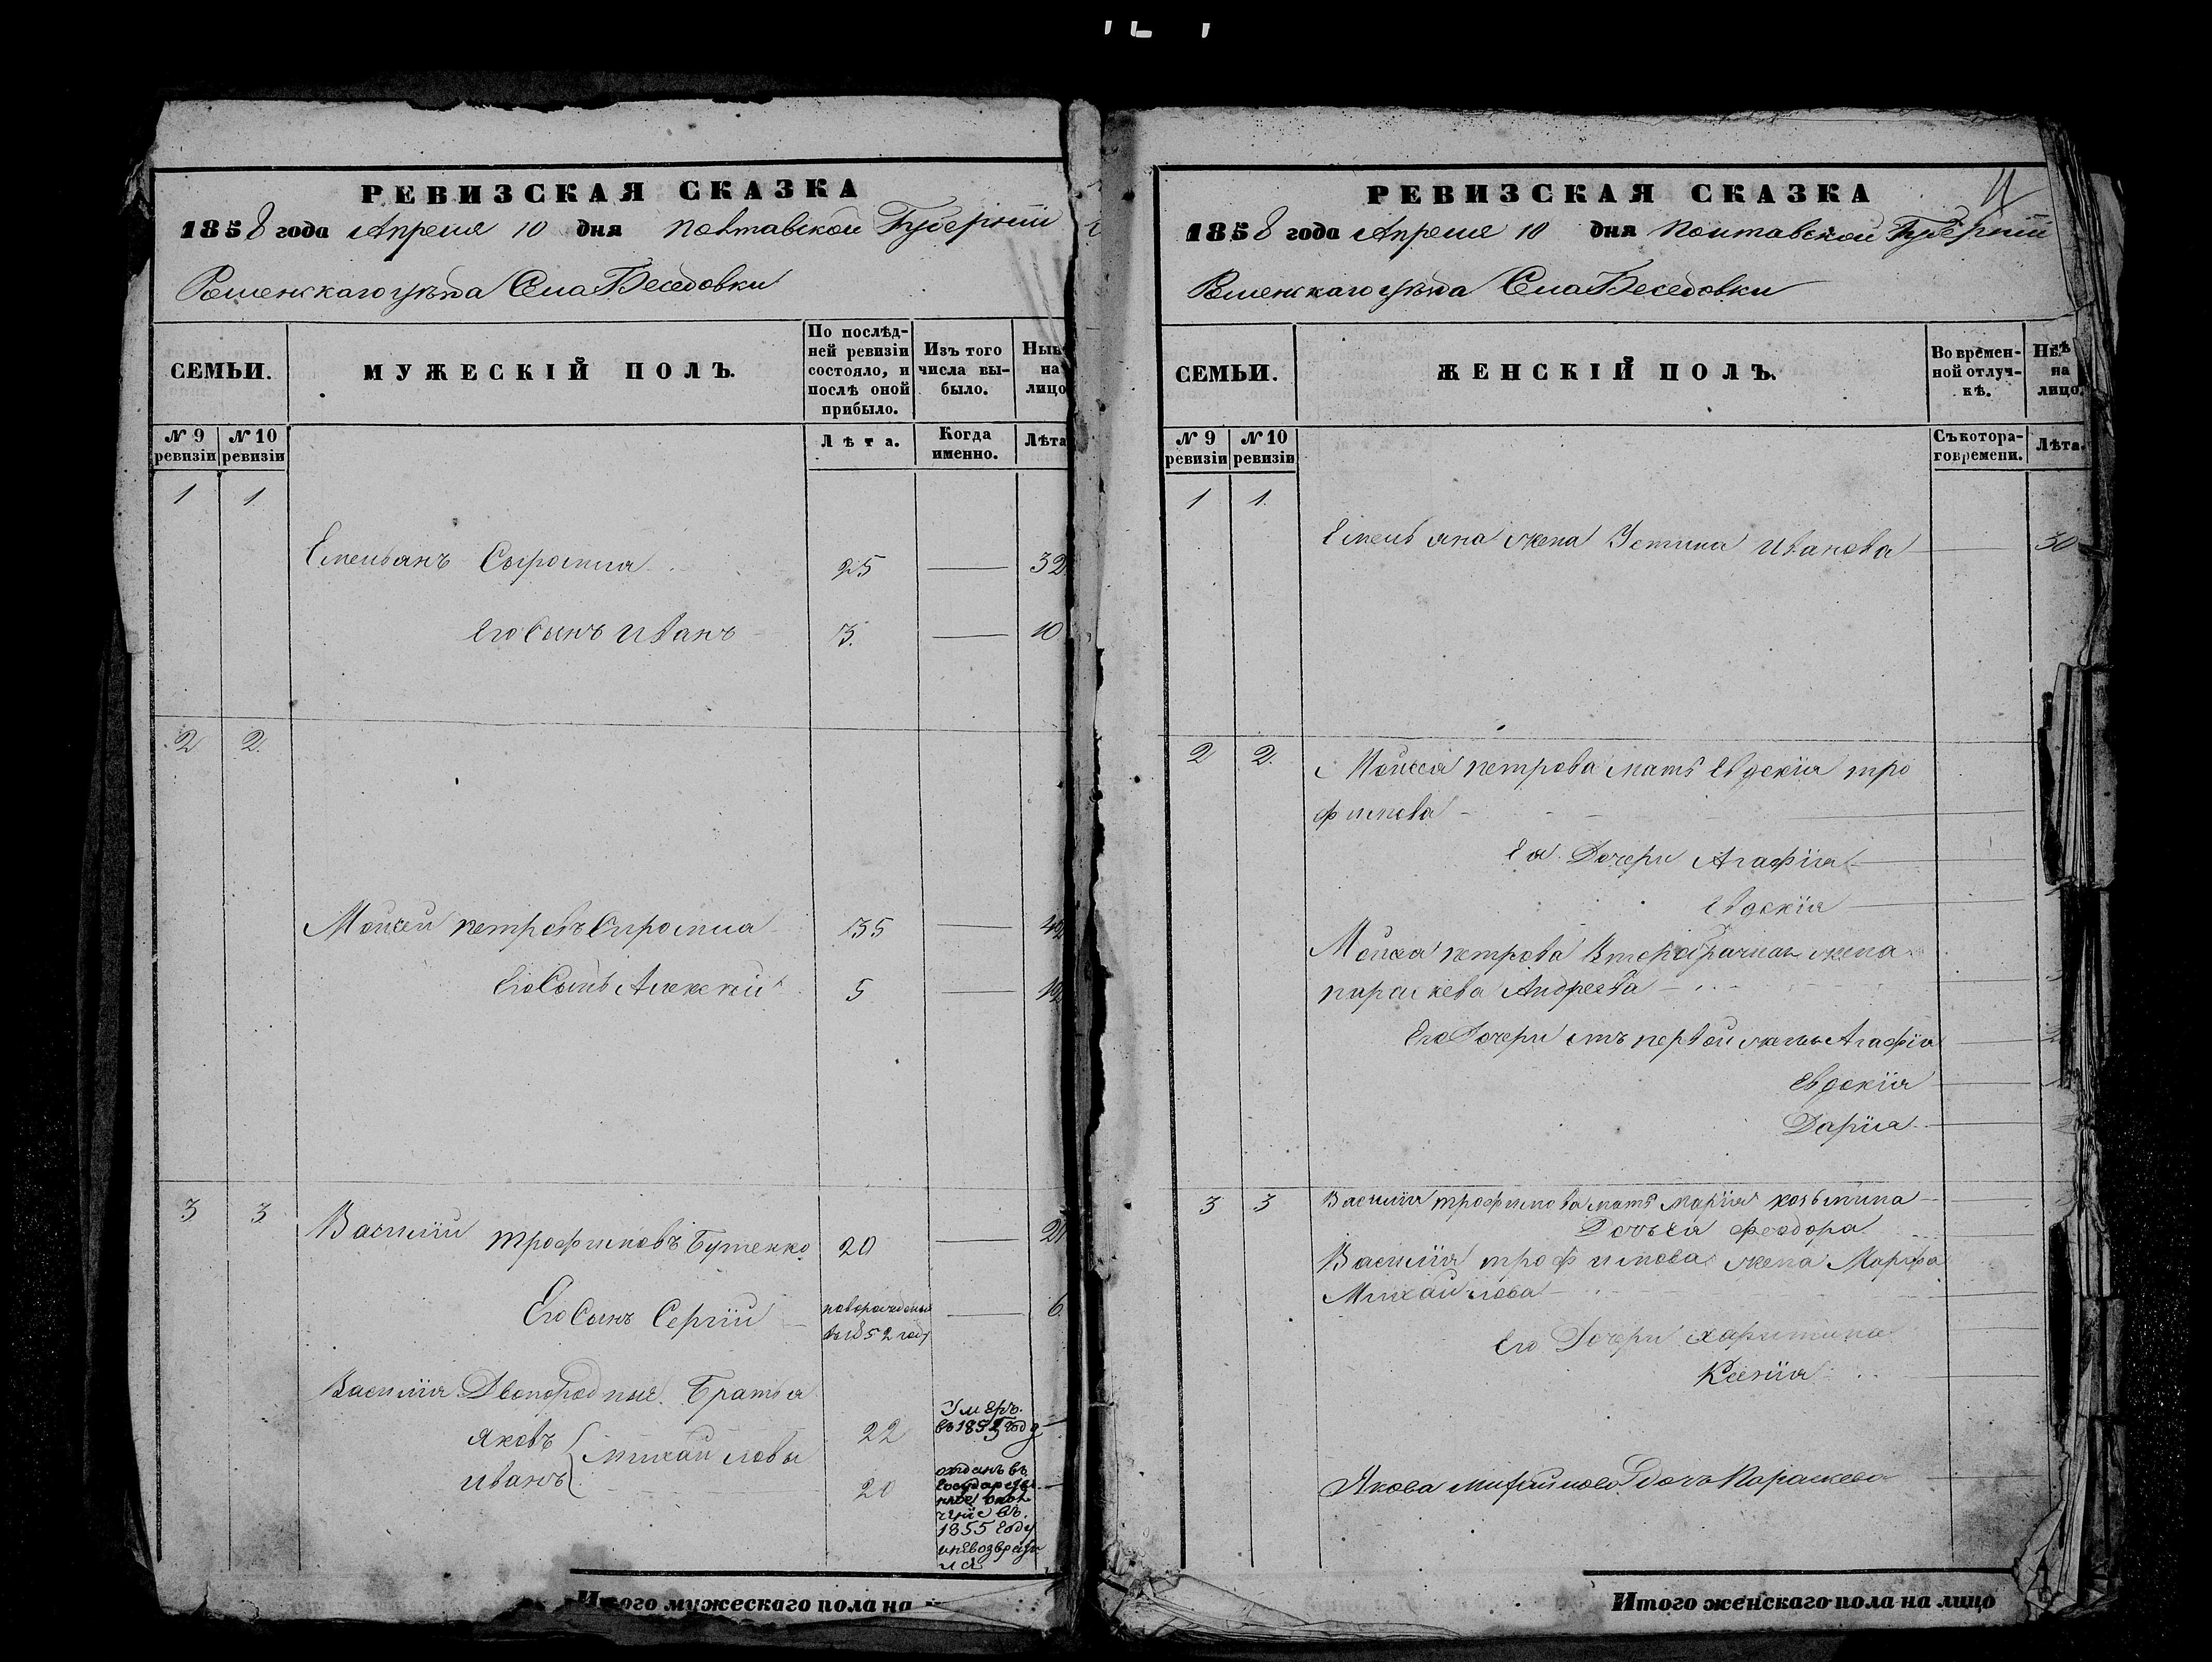 РЕВИЗСКАЯ СКАЗКА
1858 года Апреля 10 дня Полтавской Губерніи
Роменскаго уѣзда Села Беседовки
СЕМЬИ.
МУЖЕСКІЙ ПОЛЪ.
По послѣд-
ней ревизіи
состояло, и
послѣ оной
прибыло.
Изъ того
числа вы-
было.
на
лицо
№ 9 ревизіи
№ 10 ревизіи
Лѣта.
Когда
именно.
Лѣта
1 1
Емельянъ Сыромля 25 32
Его Сынъ Иванъ 3. 10
2 2.
Мойсей петровъ Сиромла 35
Его Сынъ Алексѣй 5
3 3
Василій трофимовъ Бутенко 20
Его Сынъ Сергій новорожденъ 6
въ 1852 году
Василія Двоюродные Братья
Яковъ Михайловы 22 Умеръ
Иванъ 20
отданъ въ
1855 Году
Итого мужескаго пола на
РЕВИЗСКАЯ СКАЗКА
1858 года Апреля 10 дня Полтавской Губерніи
Роменскаго уѣзда Села Беседовки
СЕМЬИ.
ЖЕНСКІЙ ПОЛЪ.
Во времен-
ной отлуч-
кѣ.
на
лицо.
№ 9 ревизіи
№ 10 ревизіи
Съ котора-
го времени.
Лѣта.
1 1.
Емельяна жена Устина Иванова 30
2 2.
Мойсея петрова мать Евдокія тро
фимова
Ея Дочери Агафія
Евдокія
Мойсея петрова Второбрачная жена
параскева Андреева
Его Дочери отъ первой жены Агафія
Евдокія
Дарія
3 3
Василія трофимова мать Марія козьмина
Дочь Ея Феодора
Василія трофимова жена Марфа
Михайлова
Его Дочери Харитина
Ксенія
Якова Михайлова дочь Параскева
Итого женскаго пола на лицо